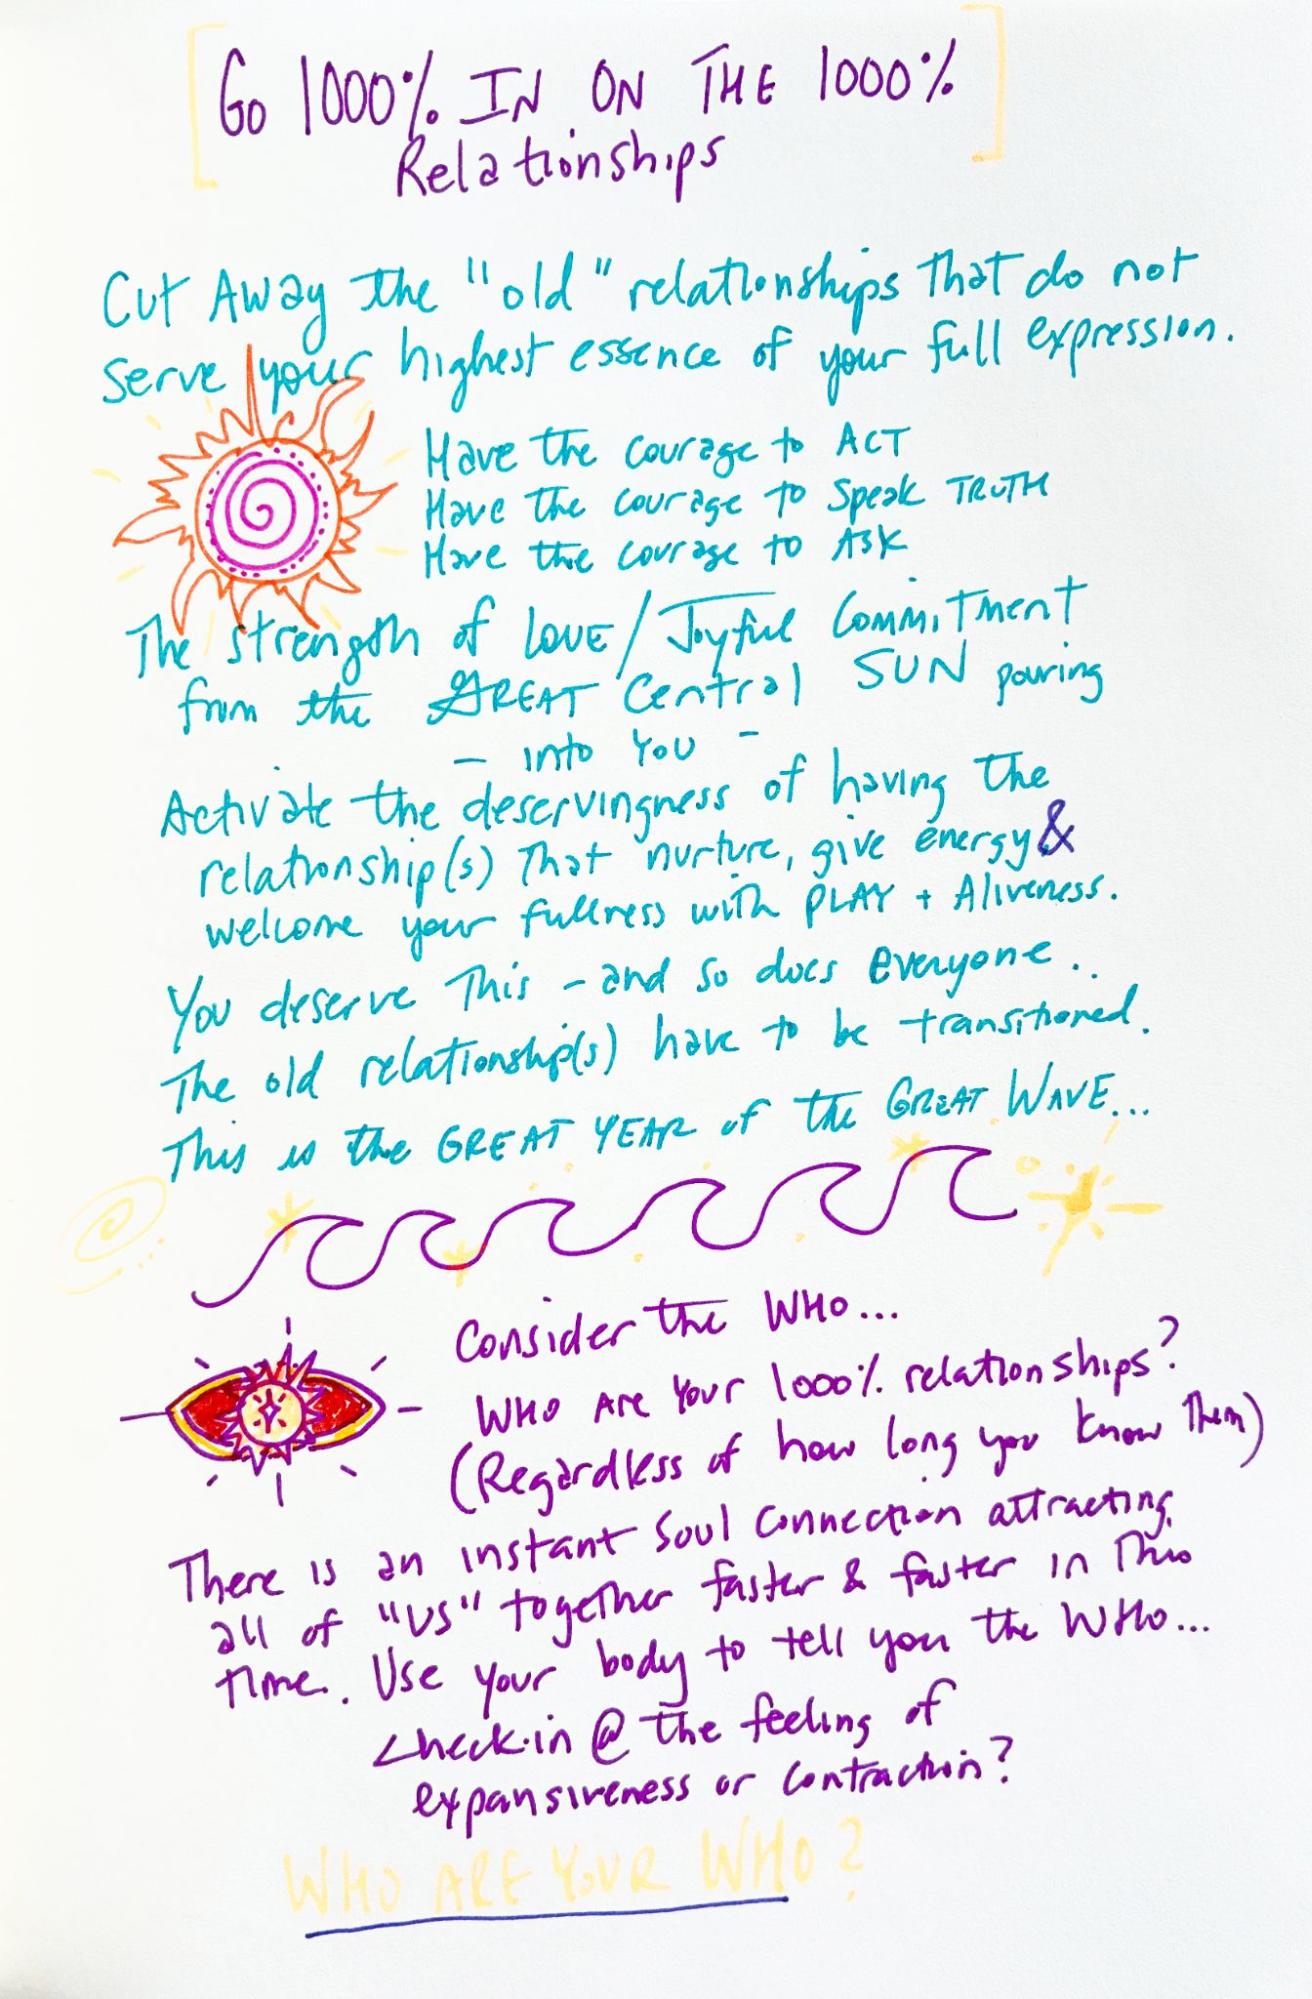 Go 1000% IN ON THE 1000%
Relationships
Cut Away the "old" relationships That do not
serve your highest essence of your full expression.
Have the courage to ACT
Have the courage to Speak TRUTH
Have the courage to ASK
The strength of LOVE/Joyful Commitment
from the GREAT Central SUN pouring
- into YOU -
Activate the deservingness of having the
relationship(s) That nurture, give energy &
welcome your fullness with PLAY + Aliveness.
You deserve This - and so does everyone..
The old relationship(s) have to be transitioned.
This is the GREAT YEAR of the GREAT WAVE...
Consider the WHO...
WHO ARE Your 1000% relationships?
(Regardless of how long you know Them)
There is an instant Soul Connection attracting
all of "US" together faster & faster in This
time. Use your body to tell you the WHO...
check-in @ the feeling of
expansiveness or contraction?
WHO ARE YOUR WHO?